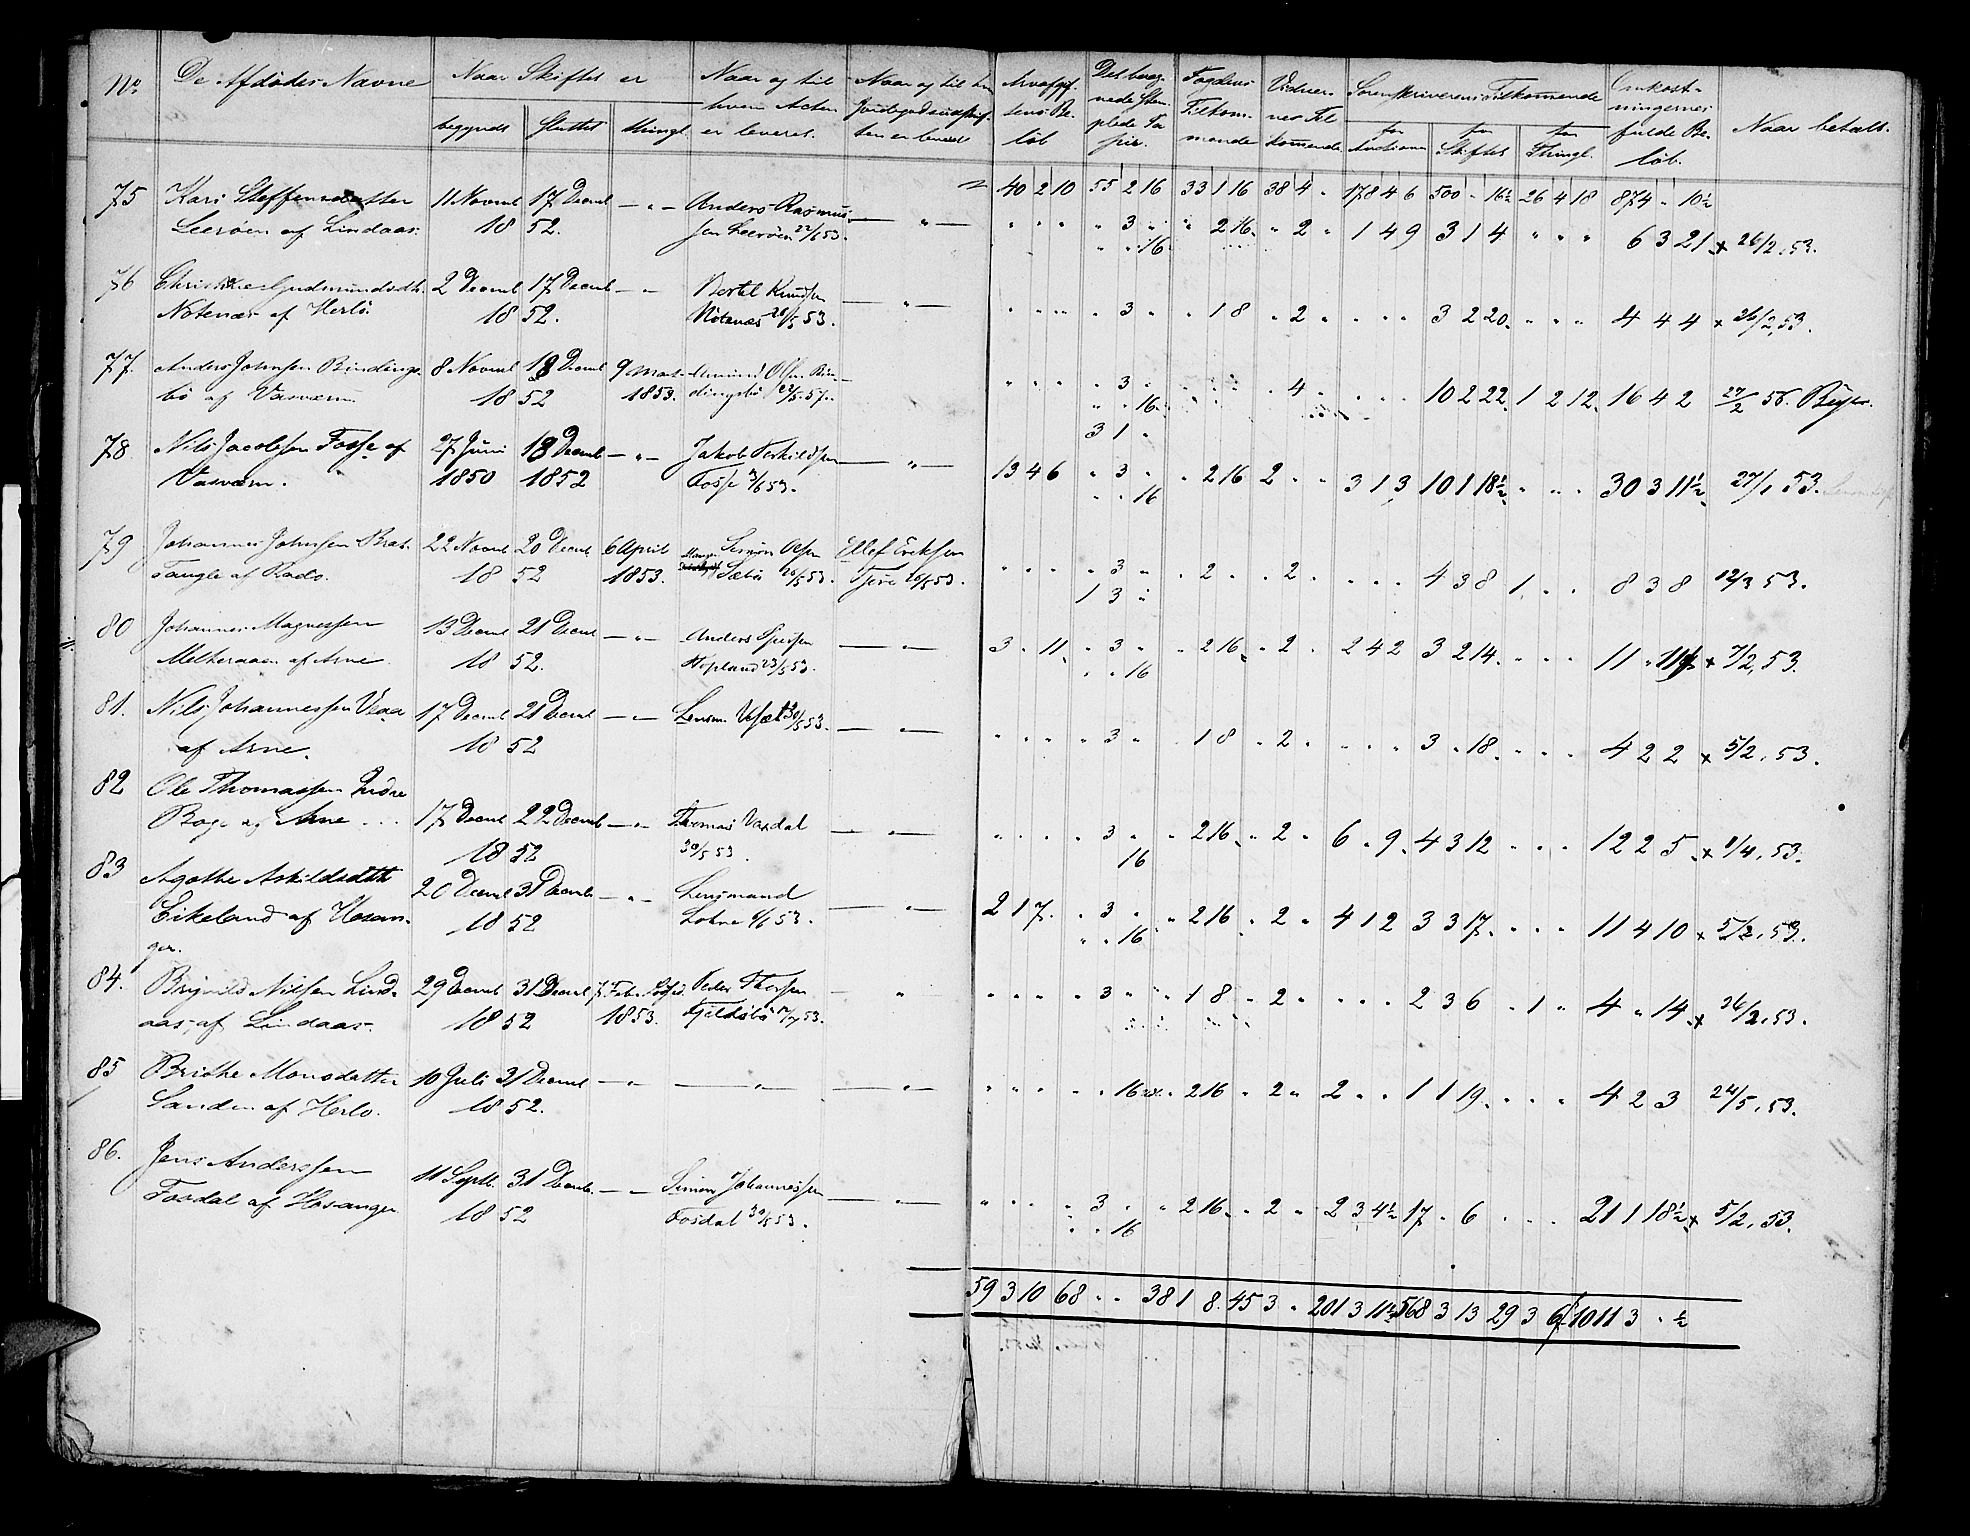 No. De Afdødes Navne Naar Skiftet er Naar og til Naar og til Arvafgif- Det bereg- Fogdens Vidner- Sorenskriverens Tilkommende Omkost-
hvem Acten tens Be- nede Stem- Tilkom- nes Til- ningernes Naar betalt.
begyndt Sluttet thingl. er leveret. ten er leveret løb plede Pa- mende kommende for Auctioner for Skiftet for Thingl. fulde Be-
pir. løb.
40 2 10 55 2 16 33 1 16 38 4 " 178 4 6 500 " 16½ 26 4 18 874 " 10½
75 Kari Steffensdatter 11 Novembr 17 Decemb — " — Anders Rasmus- — " —
Leerøen af Lindaas. 18 52. sen Leerøen 22/5 53. " " " " 3 " " 2 16 " 2 " 1 4 9 3 1 4 " " " 6 3 21 x 26/2, 53.
" " 16
76 2 Decemb 17 Decemb — " Bertel Knudsen — " —
Notenæs af Herlø. 18 52. Notenæs 28/5 53. " " " " 3 " " 1 8 " 2 " " " " 3 2 20 " " " 4 4 4 x 26/2, 53.
77. Anders Johnsen Bindings- 8 Novemb 18 Decemb 9 Marts Olsen Bin-
bø af 18 52 1853. dingsbø " " " " 3 " " 4 " 10 2 22 1 2 12 16 4 2 27/2 56. Beyer.
" " 16
3 1 "
78. Nils Jacobsen Fosse af 27 Juni 18 Decemb — " — Jakob Torkildsen — " —
1850 1852 Fosse 53. 13 4 6 " 3 " " 2 16 2 " " 3 1 3 10 1 18½ " " " 30 3 11½ 27/1 53.
" " 16
79 Johannes Johnsen 22 Novemb 20 Decemb 6 April Simon Ellef Eriksen
Tangle af Radø. 18 52 1853. Sæbø 26/5 53. 26/5 53. " " " " 3 " " 2 " " 2 " " " " 4 3 8 1 " " 8 3 8 12/3 53.
1 3 "
80 Johannes Magnessen 13 Decemb 21 Decemb — " — Anders — " —
af Arne. 18 52. Hopland 23/5 53. 3 " 11 " 3 " " 2 16 " 2 " 2 4 2 3 2 14 " " " 11 " x 7/2, 53.
" " 16
81. Nils Johannessen 17 Decemb 21 Decemb — " — Lensm. 53. — " —
af Arne. 18 52 " " " " 3 " " 1 8 " 2 " " " " 3 " 18 " " " 4 2 2 x 5/2, 53.
82 Ole Thomassen Indre
Boge af Arne 17 Decemb 22 Decemb — " Thomas Vaxdal — " —
18 52 30/5 53. " " " " 3 " " 2 16 " 2 " 6 " 9 4 3 12 " " " 12 2 5 x 1/4, 53.
16
83 Agathe Askildsdtt
Eikeland af Hosan- 20 Decemb 31 Decemb — " — Lensmand — " —
ger. 18 52 Lohne 6/6 53. 2 1 7 " 3 " " 2 16 " 2 " 4 1 2 3 3 17 " " " 11 4 10 x 5/2, 53.
" " 16
84. Nilsen Lind- 29 Decemb 31 Decemb 7 Febr. Peder — "
aas, af Lindaas. 18 52 1853. 53. " " " " 3 " " 1 8 " 2 " " " " 2 3 6 " 1 " 4 " 14 x 26/2, 53.
85 Brithe Monsdatter 10 Juli 31 Decemb — " — " — — " —
Sanden af Herlø. 18 52. " " " " " 16 " 2 16 " 2 " 2 " " 1 1 19 " " " 4 2 3 24/5, 53.
86. Jens Anderssen
Fosdal af Hosanger 11 Septb. 31 Decemb. — " Simon Johannessen — " —
18 52 Fosdal 30/5 53. " " " " 3 " " 2 16 " 2 " 2 3 4½ 17 " 6 " " " 21 1 18½ x 5/2, 53.
" " 16
59 3 10 68 " " 38 1 8 45 3 " 201 3 11½ 568 3 13 29 3 6 1011 3 " ½